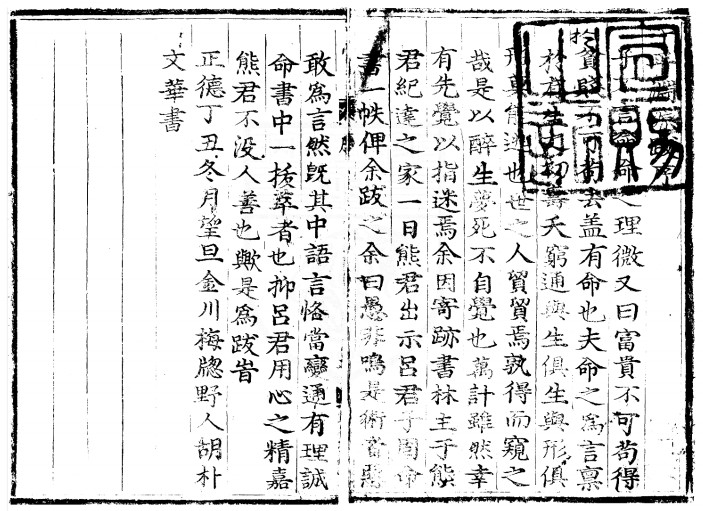 子平源流序
子罕言命命之理微又曰富貴不可苟得
貧賤不可苟去盖有命也夫命之爲言禀
於有生之初壽夭窮通與生俱生與形俱
形莫能逃也世之人貿貿焉孰得而窺之
哉是以醉生夢死不自覺也萬計雖然幸
有先覺以指迷焉余因寄跡書林主于熊
君紀達之家一日熊君出示呂君子開命
書一帙俾余跋之余曰愚非鳴是術當
敢爲言然旣其中語言恪當變通有理誠
命書中一拔萃者也抑呂君用心之精嘉
熊君不没人善也歟是爲跋旹
正德丁丑冬月望旦金川梅牕野人胡朴
文華書